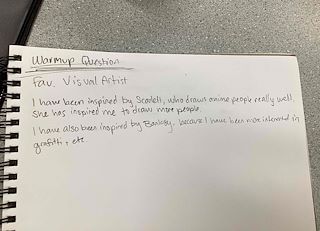 Warmup Question
fav. Visual Artist
I have been inspired by Scarlett, who draws anime people really well.
She has inspired me to draw more people.
I have also been inspired by Banksy, because I have been more interested in
graffiti, etc